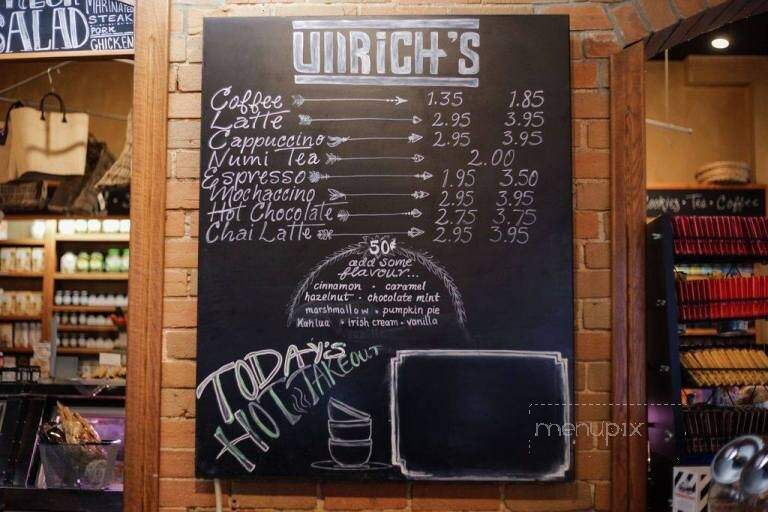 SALAD
MARINATED
STEAK
PORK
CHICKEN
ULLRICH'S
Coffee 1.35 1.85
Latte 2.95 3.95
Cappuccino 2.95 3.95
Numi Tea 2.00
Espresso 1.95 3.50
Mochaccino 2.95 3.95
Hot Chocolate 2.75 3.75
Chai Latte 2.95 3.95
50¢
add some
flavour...
cinnamon • caramel
hazelnut • chocolate mint
marshmallow • pumpkin pie
Kahlua • irish cream • vanilla
TODAY'S
HOT TAKEOUT
menupix
Cookies • Tea • Coffee